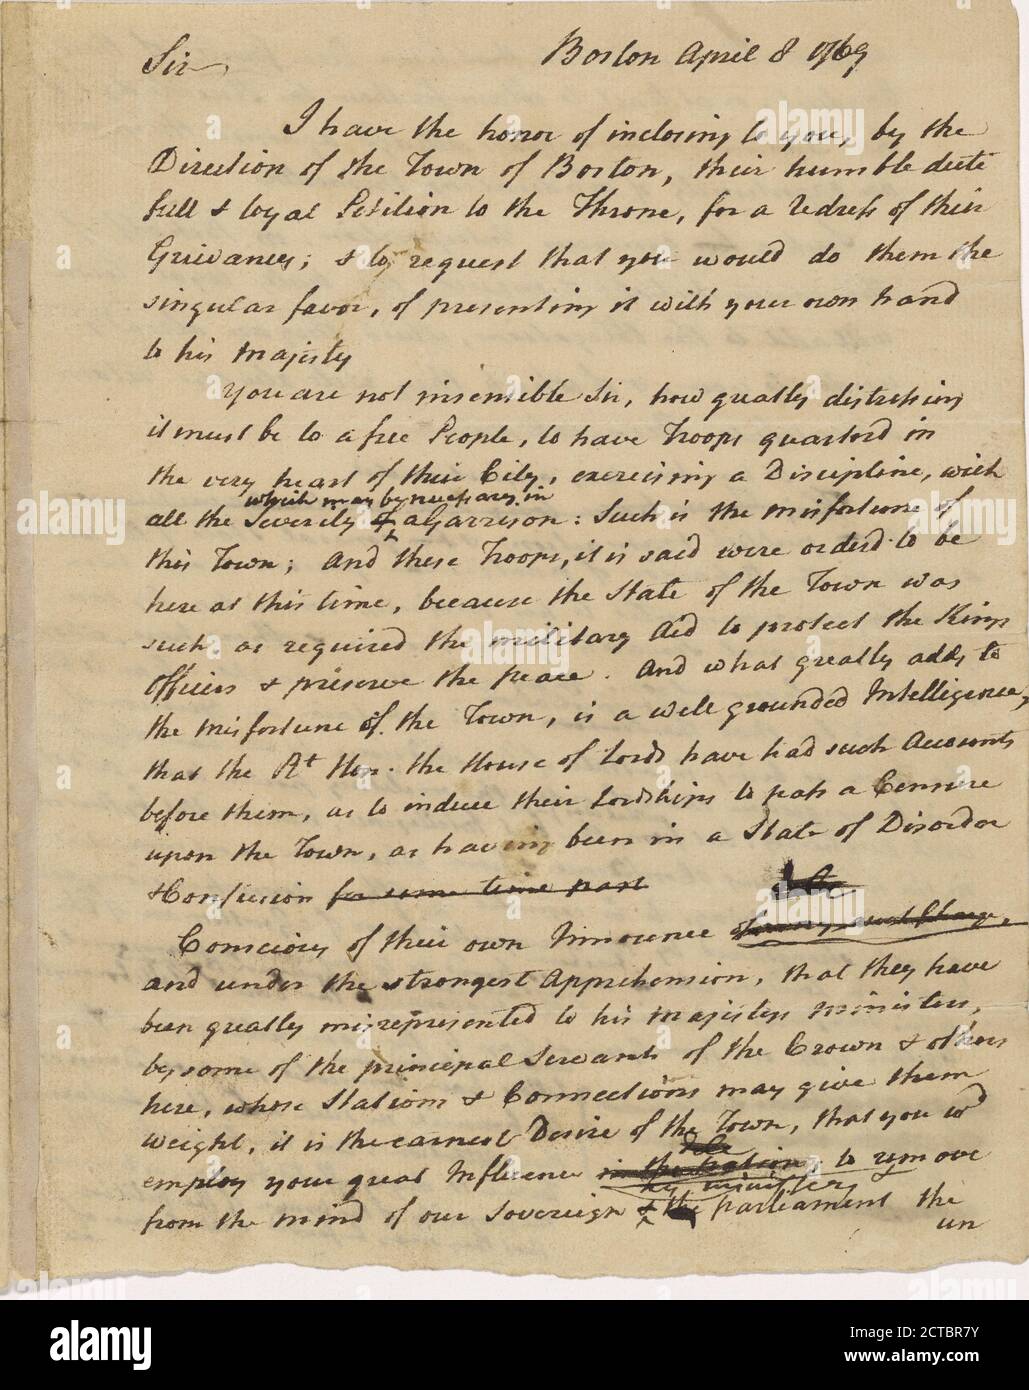 Sir
Boston April 8 1769
I have the honor of inclosing to you, by the
Direction of the Town of Boston, their humble duti
full & loyal Petition to the Throne, for a Redress of their
Grievances; & to request that you would do them the
singular favor, of presenting it with your own hand
to his Majesty
You are not insensible Sir, how greatly distressing
it must be to a free People, to have Troops quarterd in
the very heart of their City, exercising a Discipline, with
which may be necessary in
all the severity of a Garrison: Such is the misfortune of
this Town; And these Troops, it is said were orderd to be
here at this time, because the State of the Town was
such as required the military Aid to protect the Kings
officers & preserve the peace. And what greatly adds to
the misfortune of the Town, is a well grounded Intelligence,
that the Rt Hon. the House of Lords have had such Accounts
before them, as to induce their Lordships to pass a Censure
upon the Town, as having been in a State of Disorder
& Confusion for some time past
Conscious of their own Innocence
and under the strongest Apprehension, that they have
been greatly misrepresented to his Majestys ministers,
by some of the principal Servants of the Crown & others
here, whose Stations & Connections may give them
weight, it is the earnest Desire of the Town, that you wd
employ your great Influence in the nation, to remove
his ministers
from the mind of our Sovereign & the parliament the
un
alamy
Image ID: 2CTBR7Y
www.alamy.com